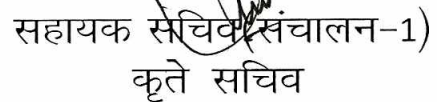 सहायक सचिव(संचालन-1)
कृते सचिव